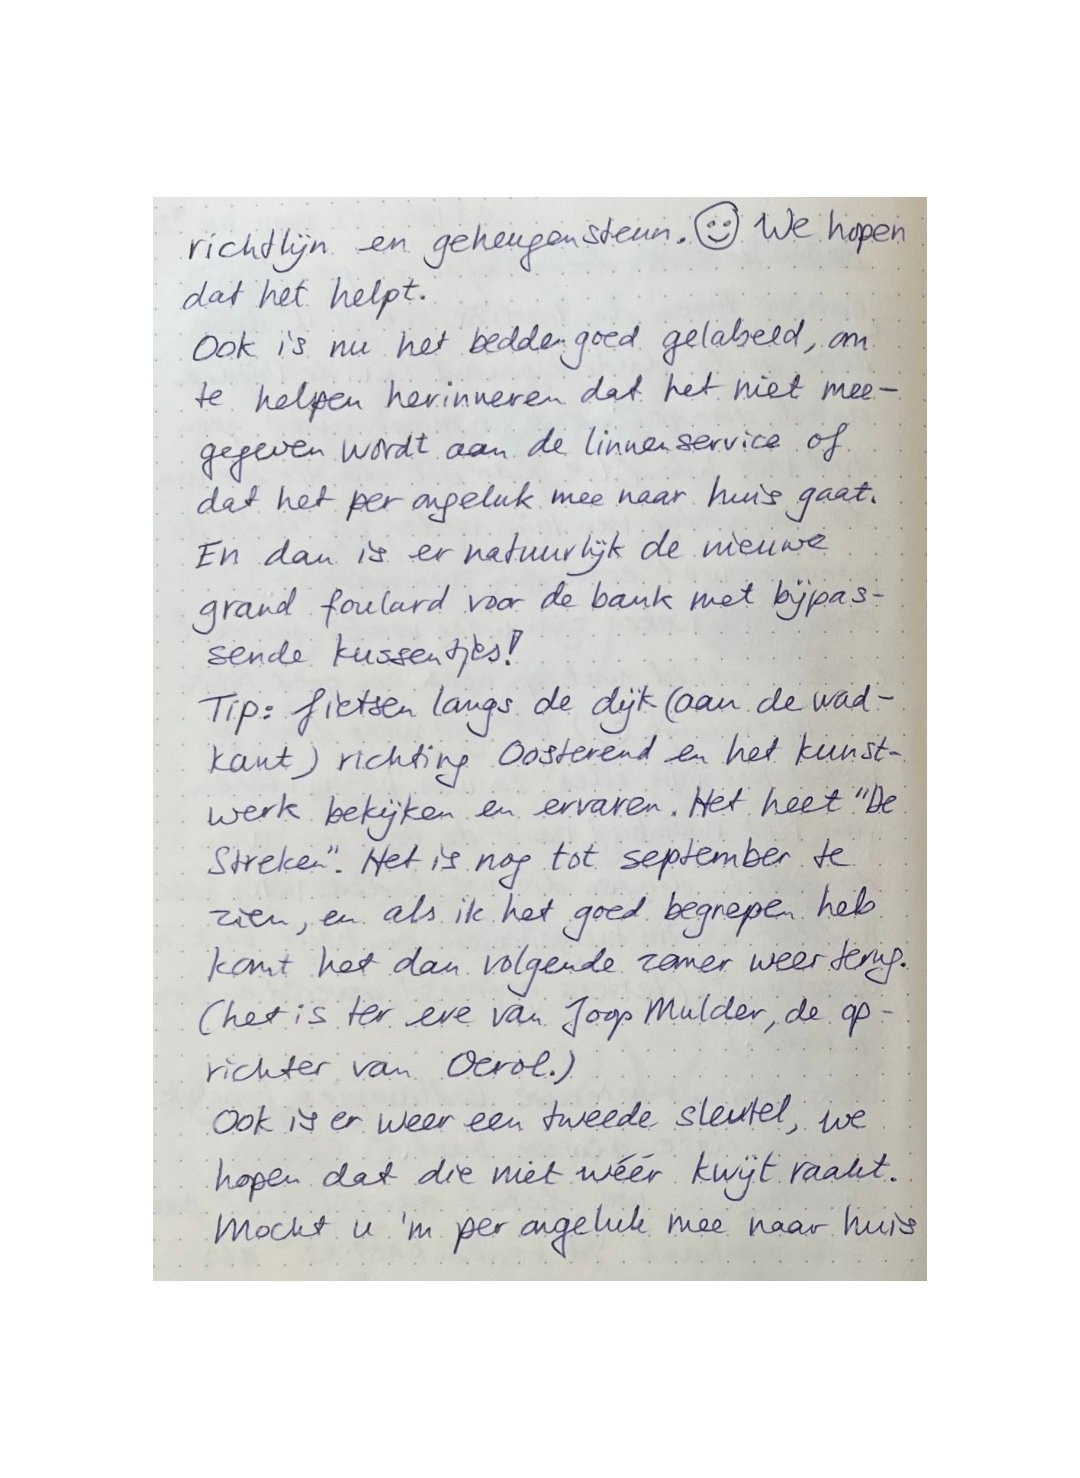 richtlijn en geheugensteun. ☺ We hopen
dat het helpt.
Ook is nu het beddengoed gelabeld, om
te helpen herinneren dat het niet mee-
gegeven wordt aan de linnenservice of
dat het per ongeluk mee naar huis gaat.
En dan is er natuurlijk de nieuwe
grand foulard voor de bank met bijpas-
sende kussentjes!
Tip: fietsen langs de dijk (aan de wad-
kant) richting Oosterend en het kunst-
werk bekijken en ervaren. Het heet "De
Streken". Het is nog tot september te
zien, en als ik het goed begrepen heb
komt het dan volgende zomer weer terug.
(het is ter ere van Joop Mulder, de op-
richter van Oerol.)
Ook is er weer een tweede sleutel, we
hopen dat die niet wéér kwijt raakt.
Mocht u 'm per ongeluk mee naar huis